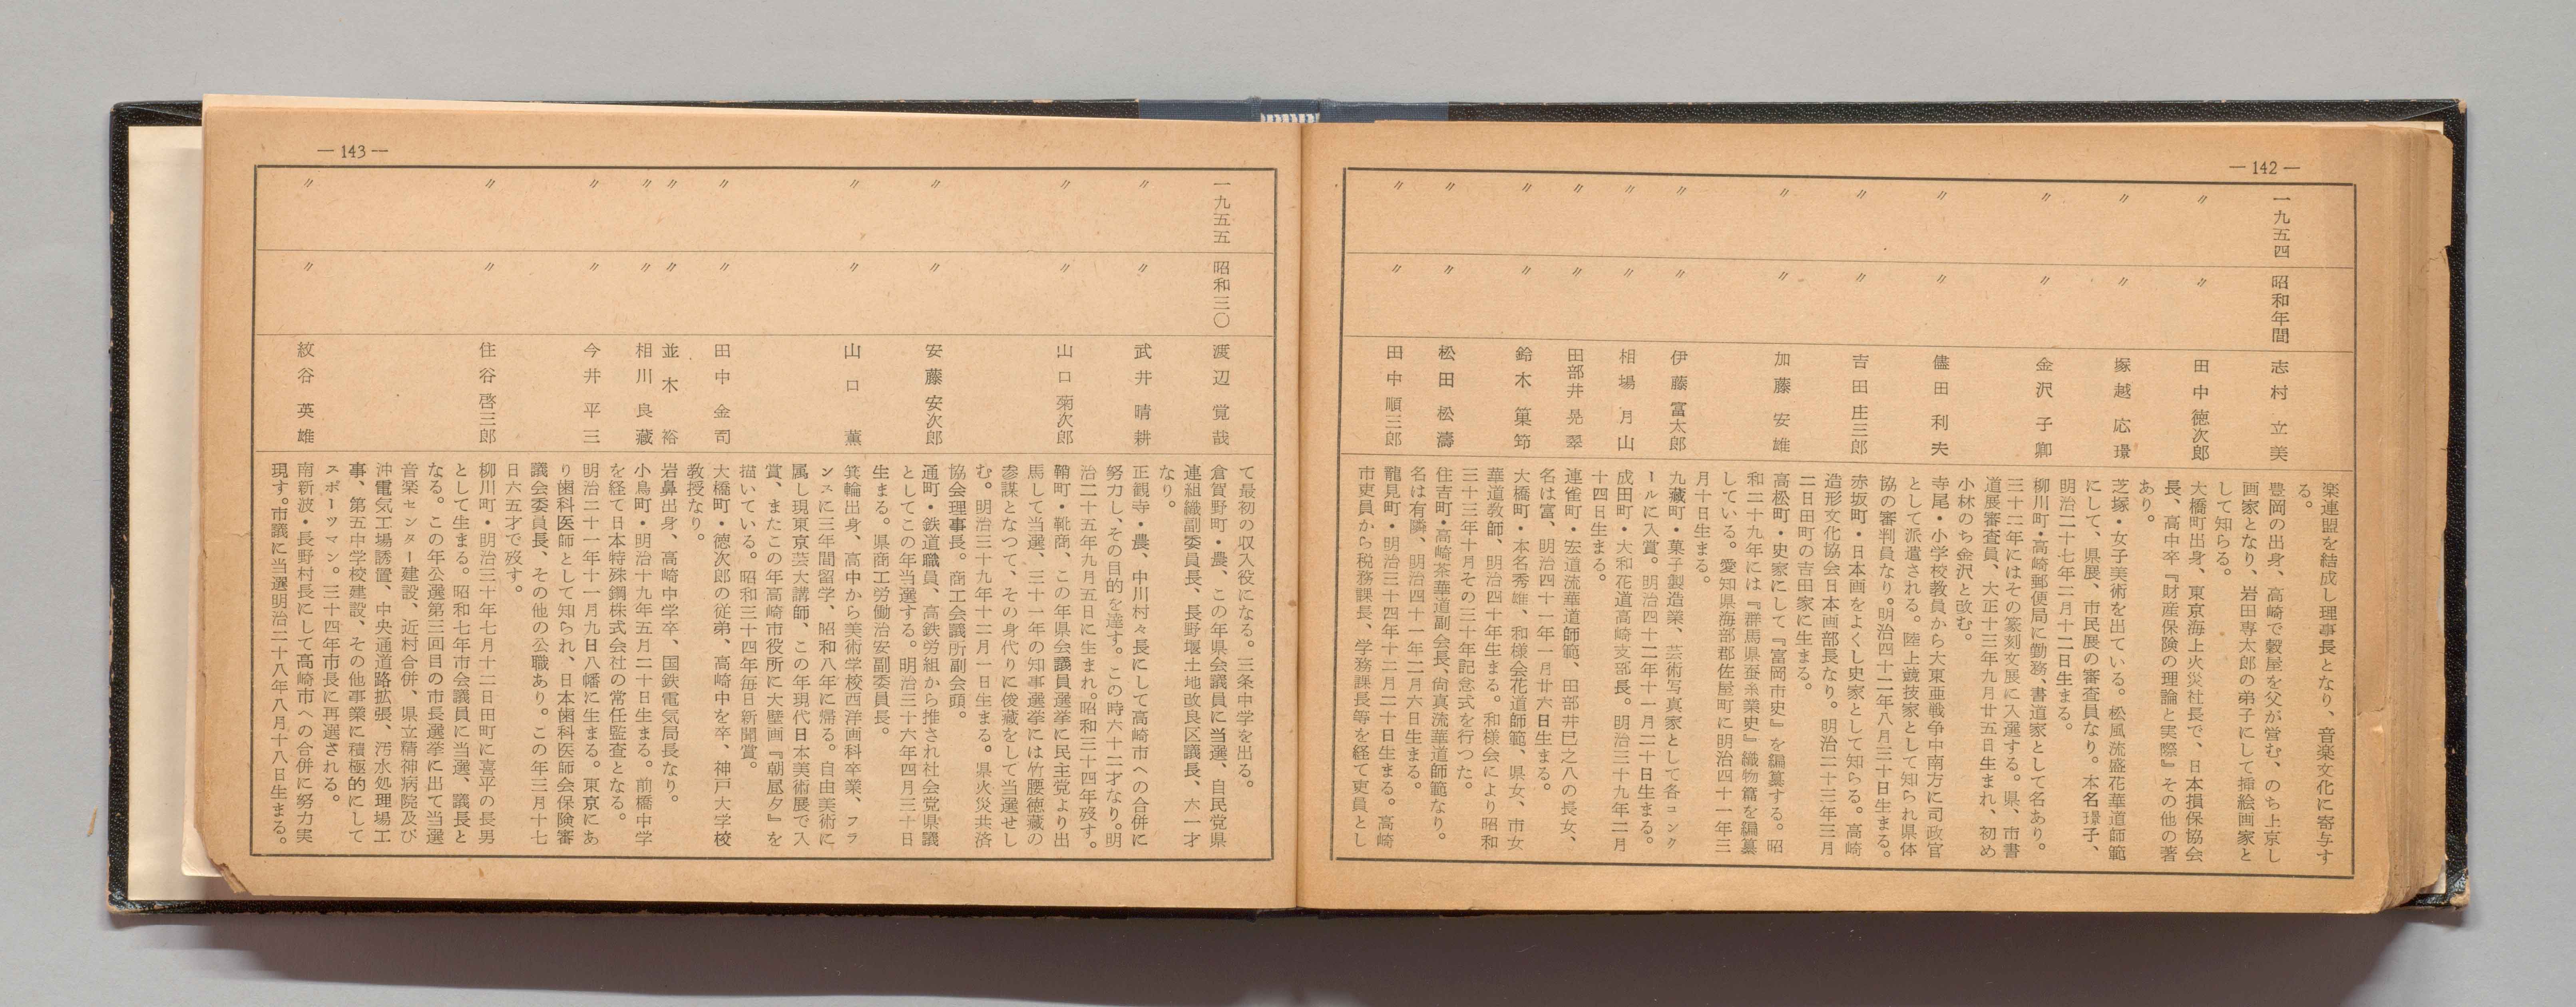 — 142 —
一九五四 昭和年間 志村立美
楽連盟を結成し理事長となり、音楽文化に寄与す
る。
豊岡の出身、高崎で穀屋を父が営む、のち上京し
画家となり、岩田専太郎の弟子にして挿絵画家と
して知らる。
〃 〃 田中徳次郎
大橋町出身、東京海上火災社長で、日本損保協会
長、高中卒『財産保険の理論と実際』その他の著
あり。
〃 〃 塚越応璟
芝塚・女子美術を出ている。松風流盛花華道師範
にして、県展、市民展の審査員なり。本名璟子、
明治二十七年二月十二日生まる。
〃 〃 金沢子卿
柳川町・高崎郵便局に勤務、書道家として名あり。
三十二年にはその篆刻文展に入選する。県、市書
道展審査員、大正十三年九月廿五日生まれ、初め
小林のち金沢と改む。
〃 〃 儘田利夫
寺尾・小学校教員から大東亜戦争中南方に司政官
として派遣される。陸上競技家として知られ県体
協の審判員なり。明治四十二年八月三十日生まる。
〃 〃 吉田庄三郎
赤坂町・日本画をよくし史家として知らる。高崎
造形文化協会日本画部長なり。明治二十三年三月
二日田町の吉田家に生まる。
〃 〃 加藤安雄
高松町・史家にして『富岡市史』を編纂する。昭
和二十九年には『群馬県蚕糸業史』織物篇を編纂
している。愛知県海部郡佐屋町に明治四十一年三
月十日生まる。
〃 〃 伊藤富太郎
九蔵町・菓子製造業、芸術写真家として各コンク
ールに入賞。明治四十二年十一月二十日生まる。
〃 〃 相場月山
成田町・大和花道高崎支部長。明治三十九年二月
十四日生まる。
〃 〃 田部井晃翠
連雀町・宏道流華道師範、田部井巳之八の長女、
名は富、明治四十一年一月廿六日生まる。
〃 〃 鈴木菓笻
大橋町・本名秀雄、和様会花道師範、県女、市女
華道教師、明治四十年生まる。和様会により昭和
三十三年十月その三十年記念式を行つた。
〃 〃 松田松濤
住吉町・高崎茶華道副会長、尙真流華道師範なり。
名は有隣、明治四十一年二月六日生まる。
〃 〃 田中順三郎
龍見町・明治三十四年十二月二十日生まる。高崎
市吏員から税務課長、学務課長等を経て吏員とし
— 143 —
て最初の収入役になる。三条中学を出る。
一九五五 昭和三〇 渡辺覚哉
倉賀野町・農、この年県会議員に当選、自民党県
連組織副委員長、長野堰土地改良区議長、六一才
なり。
〃 〃 武井晴耕
正観寺・農、中川村々長にして高崎市への合併に
努力し、その目的を達す。この時六十二才なり。明
治二十五年九月五日に生まれ。昭和三十四年歿す。
〃 〃 山口菊次郎
鞘町・靴商、この年県会議員選挙に民主党より出
馬して当選、三十一年の知事選挙には竹腰徳蔵の
参謀となつて、その身代りに俊蔵をして当選せし
む。明治三十九年十二月一日生まる。県火災共済
協会理事長。商工会議所副会頭。
〃 〃 安藤安次郎
通町・鉄道職員、高鉄労組から推され社会党県議
としてこの年当選する。明治三十六年四月三十日
生まる。県商工労働治安副委員長。
〃 〃 山口薫
箕輪出身、高中から美術学校西洋画科卒業、フラ
ンスに三年間留学、昭和八年に帰る。自由美術に
属し現東京芸大講師、この年現代日本美術展で入
賞、またこの年高崎市役所に大壁画『朝昼夕』を
描いている。昭和三十四年毎日新聞賞。
〃 〃 田中金司
大橋町・徳次郎の従弟、高崎中を卒、神戸大学校
教授なり。
〃 〃 並木裕
岩鼻出身、高崎中学卒、国鉄電気局長なり。
〃 〃 相川良蔵
小鳥町・明治十九年五月二十日生まる。前橋中学
を経て日本特殊鋼株式会社の常任監査となる。
〃 〃 今井平三
明治二十一年十一月九日八幡に生まる。東京にあ
り歯科医師として知られ、日本歯科医師会保険審
議会委員長、その他の公職あり。この年三月十七
日六五才で歿す。
〃 〃 住谷啓三郎
柳川町・明治三十年七月十二日田町に喜平の長男
として生まる。昭和七年市会議員に当選、議長と
なる。この年公選第三回目の市長選挙に出て当選
音楽センター建設、近村合併、県立精神病院及び
沖電気工場誘置、中央通道路拡張、汚水処理場工
事、第五中学校建設、その他事業に積極的にして
スポーツマン。三十四年市長に再選される。
〃 〃 紋谷英雄
南新波・長野村長にして高崎市への合併に努力実
現す。市議に当選明治二十八年八月十八日生まる。